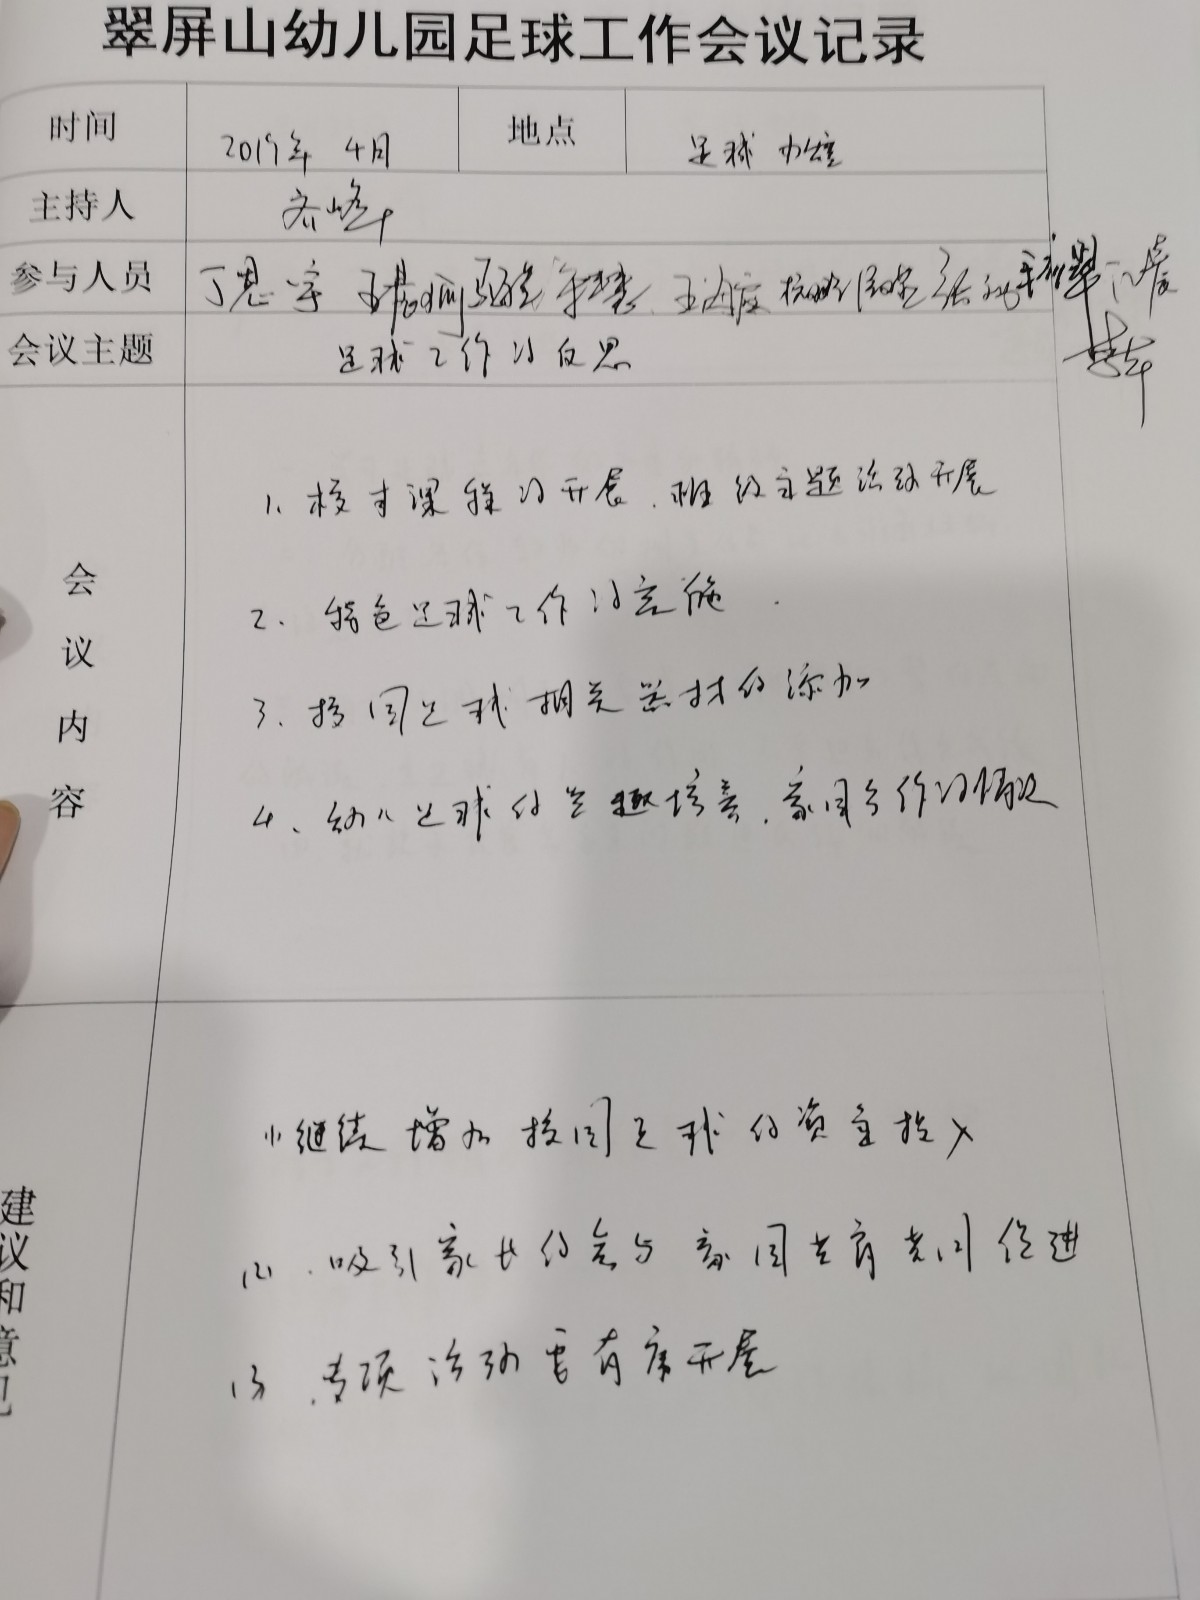 翠屏山幼儿园足球工作会议记录
时间 2019年 4月 地点 足球
主持人 齐峰
参与人员 丁思宇
会议主题 足球工作的反思
会议内容
1、校本课程的开展、班级主题活动开展
2、特色足球工作的实施.
3、校园足球相关器材的添加
4、幼儿足球的兴趣培养、家园合作的情况
建议和意见
(1)继续增加校园足球的资金投入
(2).吸引家长的参与 家园共育共同促进
(3).专项活动要有序开展